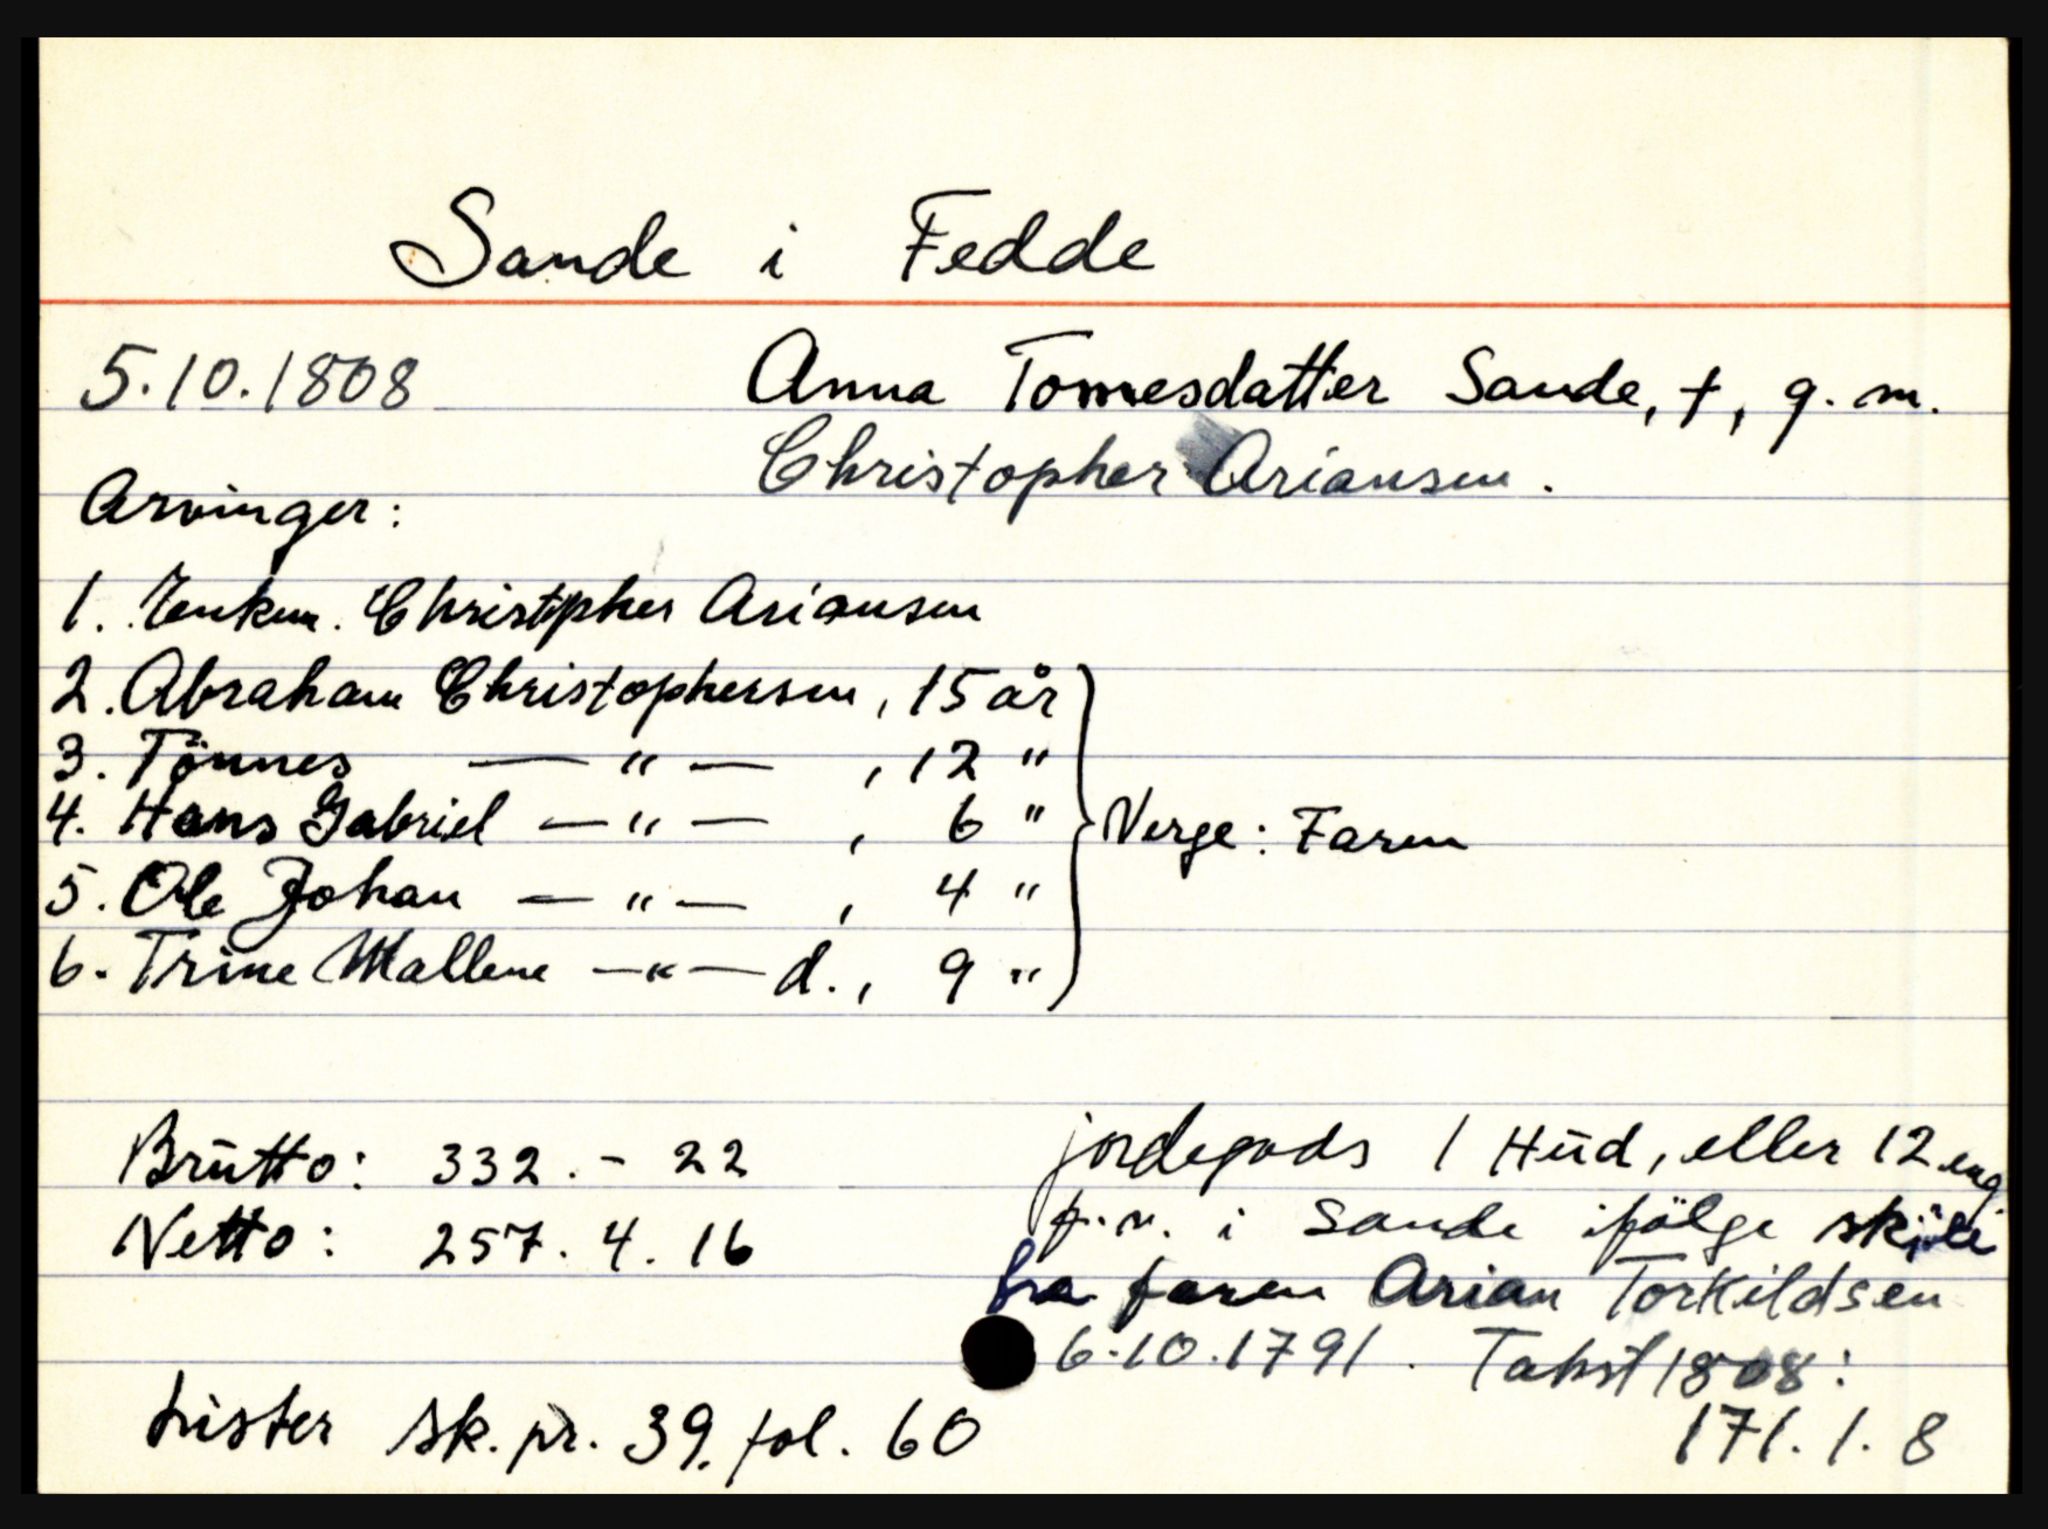 Sande i Fedde
5.10.1808
Anna Tomesdatter Sande, †, g. m.
Christopher Ariansen.
Arvinger:
1. Enkem. Christopher Ariansen
2. Abraham Christophersen, 15 år
3. Tönnes — " — , 12 "
4. Hans Gabriel — " — , 6 "
5. Ole Johan — " — , 4 "
6. Trine Mallene — " — d., 9 "
Verge: Faren
Brŭtto: 332. - 22
Netto: 257. 4. 16
jordegods 1 Hŭd, eller 12 eng.
p.n. i Sande ifölge skjöte
fra faren Arian Torkildsen
6.10.1791. Takst 1808:
171. 1. 8
Lister sk. pr. 39. fol. 60